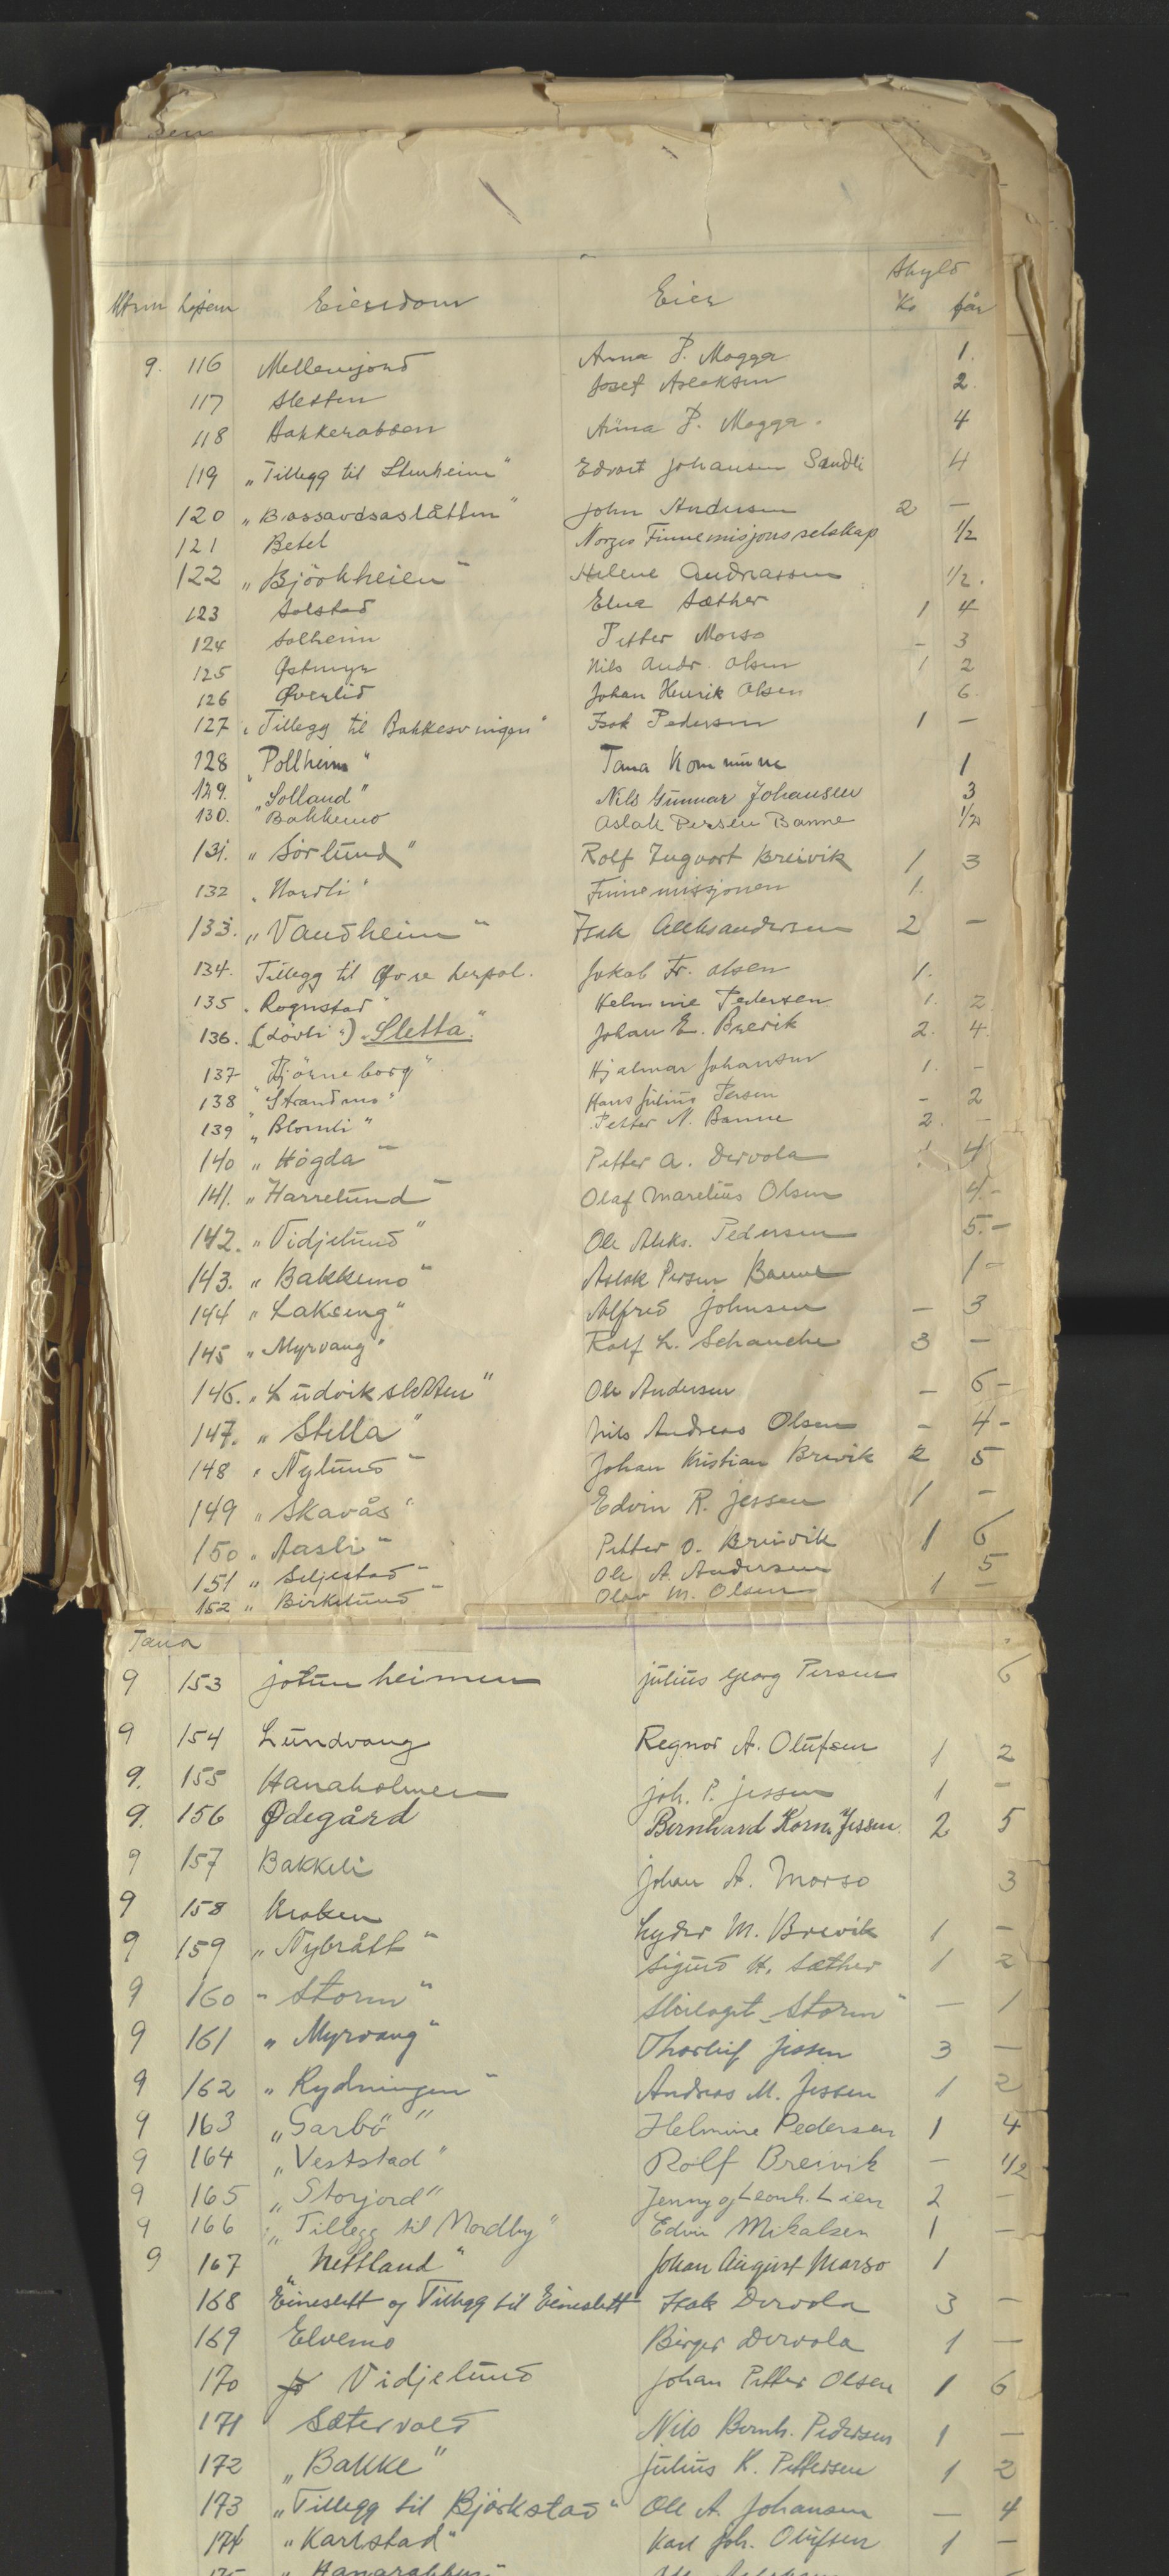 Skyld
Mtrn Løpenr Eiendom Eier Kr får
9. 116 Mellemjord Anna P. Magga 1.
117 Sletten Josef Aslaksen 2.
118 Anna P. Magga. 4
119 „Tillegg til Stenheim" Edvart Johansen Sandli 4
120 John Andersen 2 —
121 Betel Norges Finnemisjonsselskap 1/2
122 „Björkheien" Helene Andreassen 1/2.
123 Solstad Elna Sæther 1 4
124 Solheim Petter Morso - 3
125 Østmyr Nils Andr. Olsen 1 2
126 Øverlid Johan Henrik Olsen 6.
127 „Tillegg til Bakkesvingen" Isak Pedersen 1 —
128 „Pollheim" Tana Kommune 1
129. „Solland" Nils Gunnar Johansen 3
130. „Bakkemo Aslak Persen Banne 1/2
131. „Sörlund" Rolf Ingvart Breivik 1 3
132 „Nordli" Finnemissjonen 1.
133. „Vandheim" Isak Aleksandersen 2 —
134. Tillegg til Øvre Jakob Fr. Olsen 1.
135. „Rognstad" Helmine Pedersen 1. 2
136. („Lövli") „Sletta" Johan E. Breivik 2. 4.
137 „Björneborg" Hjalmar Johansen 1. -
138 „Strandmo" Hans Julius Persen - 2
139 „Blomli" Petter N. Banne 2. -
140 „Högda" Petter A. Dervola 1 4
141. „Harrelund" Olaf Marelius Olsen 4.-
142. „Vidjelund" Ole Aleks. Pedersen 5.-
143. „Bakkemo" Aslak Persen Banne 1-
144 „Lakseng" Alfred Johnsen — 3
145 „Myrvang" Rolf L. Schanche 3 —
146. „Ludvikslotten" Ole Andersen — 6-
147. „Stella" Nils Andreas Olsen - 4-
148 „Nylund" Johan Kristian Brevik 2 5
149 „Skavås" Edvin R. Jessen 1 -
150 „Aasli" Petter O. Breivik 1 6
151 „Seljestad" Ole A. Andersen 5
152 „Birkelund" Olav M. Olsen 1 —
Tana
9 153 Jotunheimen Julius Georg Persen 6
9 154 Lundvang Regnor A. Olufsen 1 2
9. 155 Hanaholmen Joh. P. Jessen 1 -
9. 156 Ødegård Bernhard Korn. Jessen. 2 5
9 157 Bakkeli Johan A. Morso 3
9 158 Kroken Lyder M. Brevik 1 -
9 159 „Nybrått" Sigurd H. Sæther 1 2
9 160 „Storm" Skilaget „Storm" — 1
9 161 „Myrvang" Thorleif Jessen 3 —
9 162 „Rydningen" Andreas M. Jessen 1 2
9 163 „Garbö" Helmine Pedersen 1 4
9 164 „Veststad" Rolf Breivik — 1/2
9 165 „Storjord" Jenny og Leonh. Lien 2 -
9 166 „Tillegg til Nordby" Edvin Mikalsen 1 —
9 167 „Nettland" Johan August Marso 1
168 Eineslett og Tillegg til Eineslett Isak Dervola 3 —
169 Elvemo Birger Dervola 1 —
170 Vidjelund Johan Petter Olsen 1 6
171 Sætervold Nils Bernh. Pedersen 1 —
172 „Bakke" Julius K. Pettersen 1 2
173 „Tillegg til Bjørkstad" Ole A. Johansen — 4
174 „Karlstad" Karl Joh. Olufsen 1 —